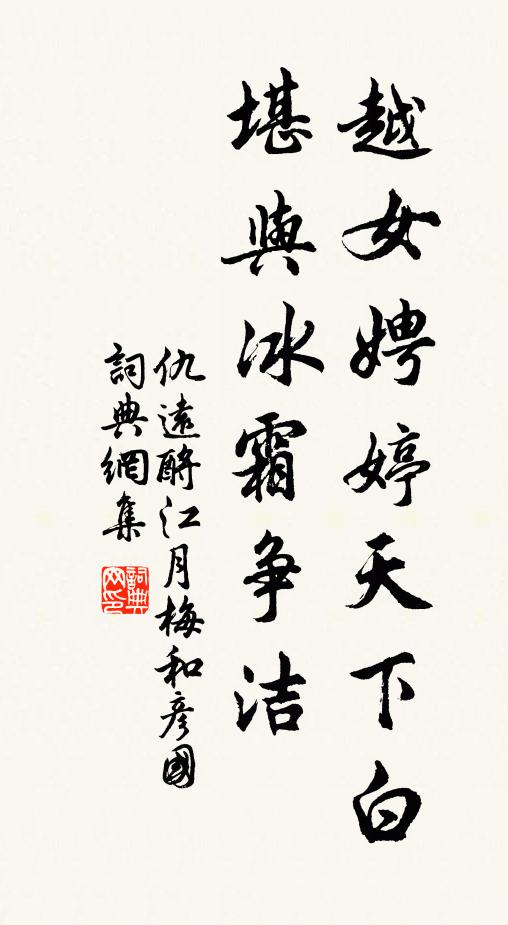 越女娉婷天下白
堪與冰霜争洁
仇遠酹江月梅和彦國
詞典網集
詞典网印